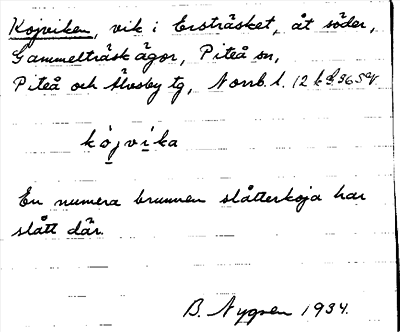 Kojviken, vik i Ersträsket, åt söder,
Gammelträsk ägor, Piteå sn,
Piteå och Älvsby tg, Norrb. l. 12
kȯjvi̱ka
En numera brunnen slåtterkoja har
slått där.
B. Nygren 1934.